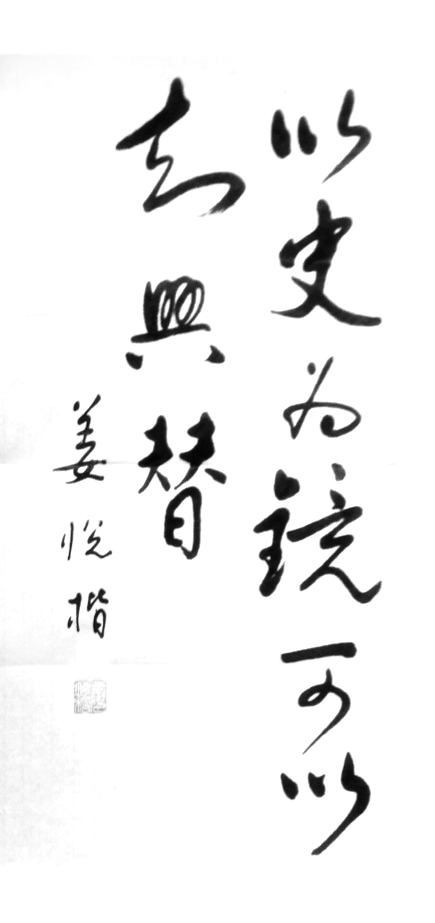 以史为镜可以
知興替
姜悦楷